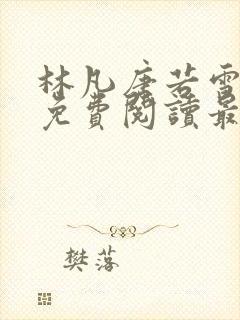 林凡唐若雪
免費閱讀最
樊落